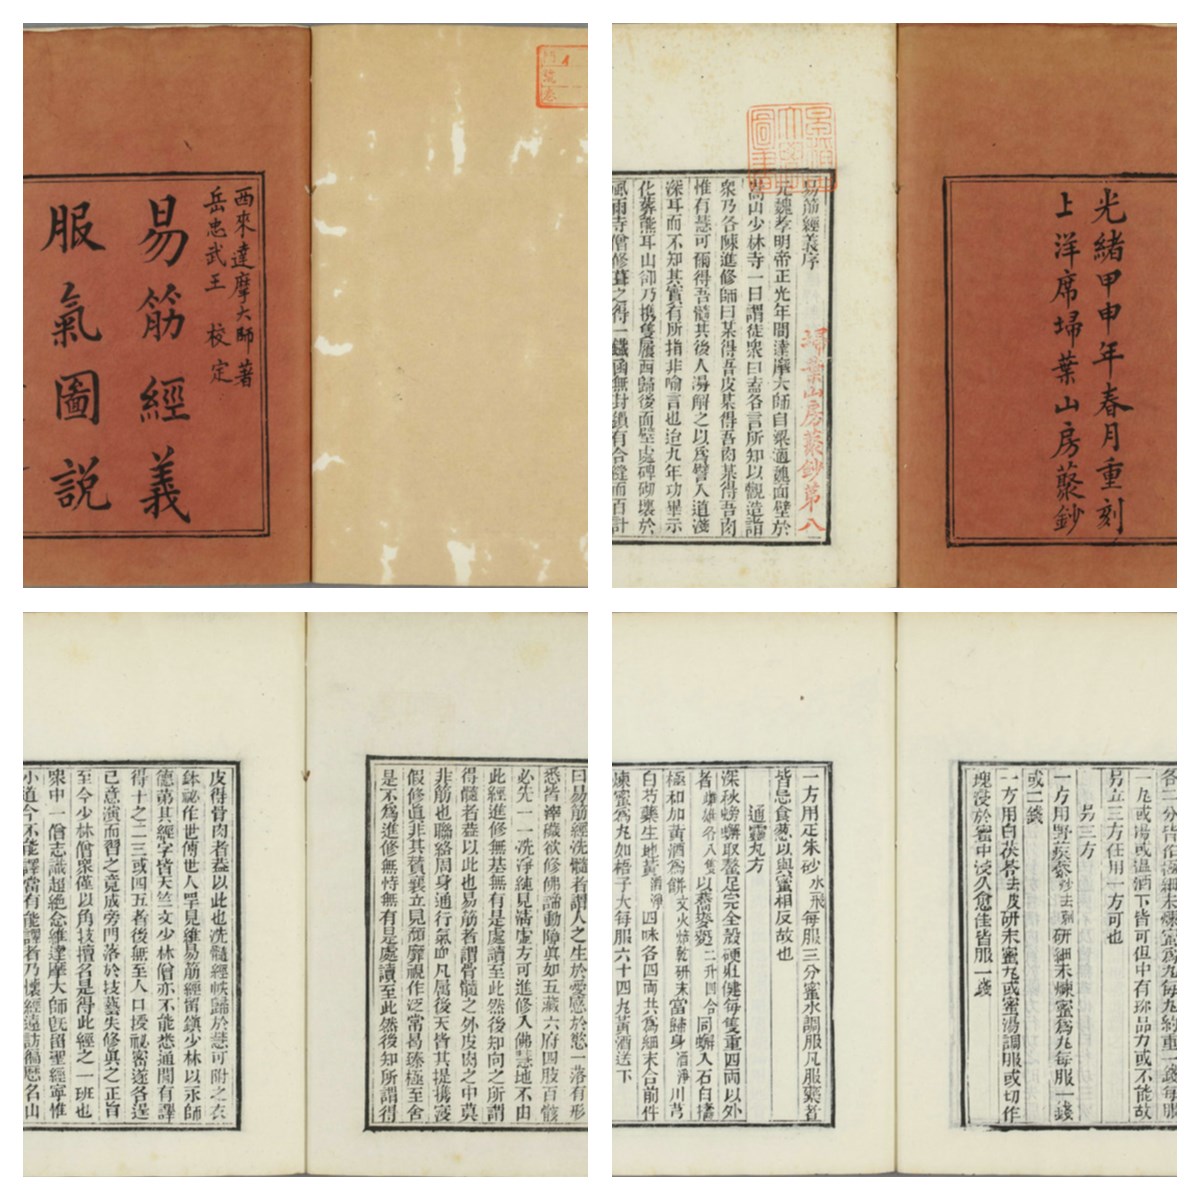 西來達摩大師著
岳忠武王 校定
易筋經義
服氣圖說
光緒甲申年春月重刻
上洋席埽葉山房藂鈔
易筋經義序
埽葉山房藂鈔第八
元魏孝明帝正光年間達摩大師自梁適魏面壁於
嵩山少林寺一日謂徒衆曰盍各言所知以觀造詣
衆乃各陳進修師曰某得吾皮某得吾肉某得吾肉
惟有慧可爾得吾髓其後人漫解之以爲譬人道淺
深耳而不知其實有所指非喻言也迨九年功畢示
化葬熊耳山卻乃携隻履西歸後面壁處碑砌壞於
風雨寺僧修葺之得一鐵函無封鎖有合縫而百計
曰易筋經洗髓者謂人之生於愛感於慾一落有形
悉皆滓穢欲修佛諦動障眞如五藏六府四肢百骸
必先一一洗淨純見清虛方可進修入佛慧地不由
此經進修無基無有是處讀至此然後知向之所謂
得髓者葢以此也易筋者謂骨髓之外皮肉之中莫
非筋也聯絡周身通行氣血凡屬後天皆其提携
假修眞非其贊襄立見頹靡視作泛常曷臻極至舍
是不爲進修無恃無有是處讀至此然後知所謂得
皮得骨肉者葢以此也洗髓經帙歸於慧可附之衣
鉢祕作世傳世人罕見維易筋經留鎮少林以永師
德第其經字皆天竺文少林僧亦不能悉通間有譯
得十之二三或四五者後無至人口授祕密遂各逞
已意演而習之竟成旁門落於技藝失修眞之正旨
至今少林僧衆僅以角技擅名是得此經之一班也
衆中一僧志識超絶念維達摩大師旣留聖經寧惟
小道今不能譯當有能譯者乃懷經遠訪徧歷名山
各二分皆作極細末煉蜜爲丸每丸約重一錢每服
一丸或湯或溫酒下皆可但中有珍品力或不能故
另立三方任用一方可也
另三方
一方用野蒺藜炒去刺研細末煉蜜爲丸每服一錢
或二錢
一方用白茯苓去皮研末蜜丸或蜜湯調服或切作
塊浸於蜜中浸久愈佳皆服一錢
一方用疋朱砂水飛每服三分蜜水調服凡服藥者
皆忌食葱以與蜜相反故也
通靈丸方
深秋螃蟹取螯足完全殻硬壯健每隻重四兩以外
者雌雄各八隻以蕎麥麪二升四合同蠏入石臼搗
極和加黃酒爲餅文火焙乾研末當歸身酒淨川芎
白芍藥生地黃酒淨四味各四兩共爲細末合前件
煉蜜爲丸如梧子大每服六十四丸黃酒送下